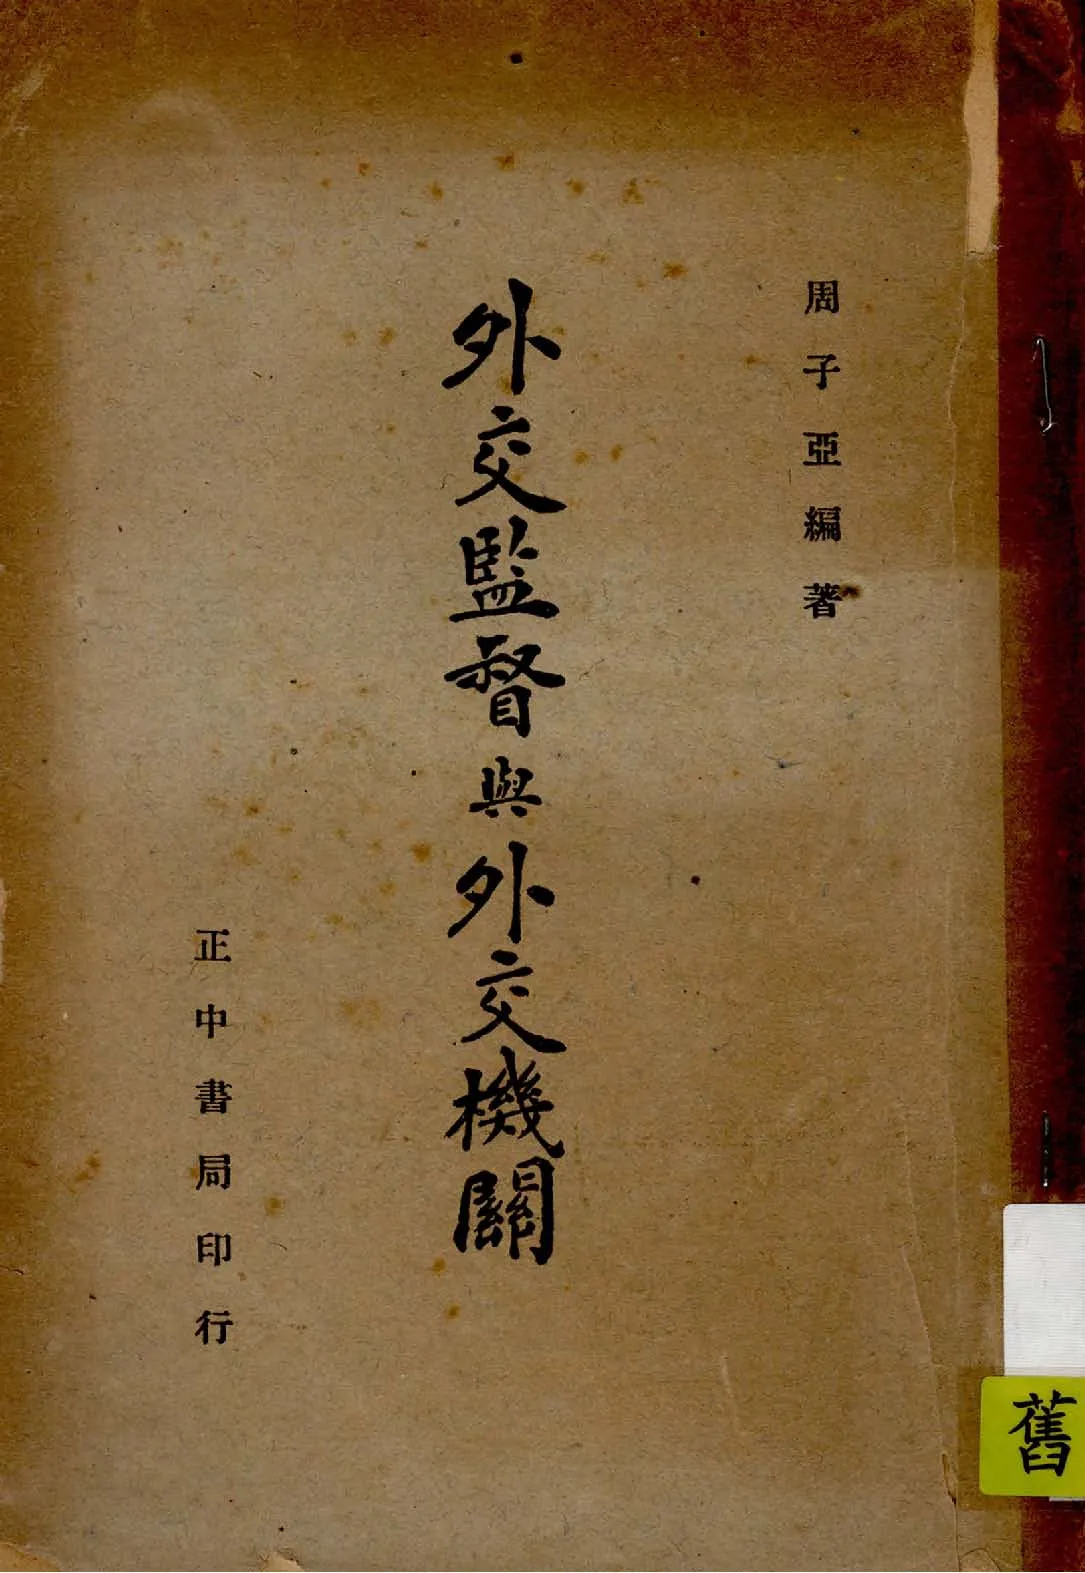 周子亞編著
外交監督與外交機關
正中書局印行
舊